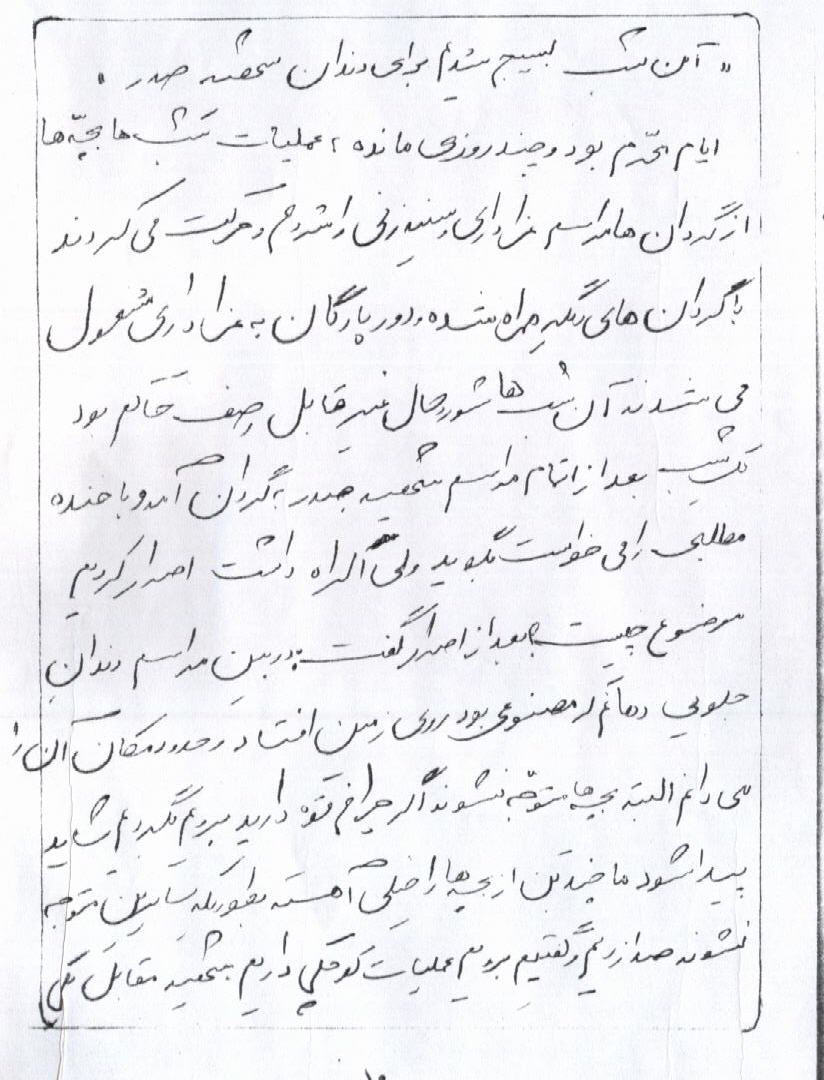 " آن شب بسیج شدیم برای دندان شهید صدر .
ایام محرّم بود و چند روزی مانده ، عملیات شب ها بچّه ها
از گردان ها مراسم عزاداری و سینه زنی را شروع و حرکت می کردند
با گردان های دیگر همراه شده و دور پادگان به عزاداری مشغول
می شدند آن شب ها شور و حال غیر قابل وصف حاکم بود
یک شب بعد از اتمام مراسم شهید صدر به گردان آمد و با خنده
مطلبی را می خواست بگوید ولی اکراه داشت اصرار کردیم
موضوع چیست ؟ بعد از اصرار گفت : در بین مراسم دندانِ
جلویی دهانم که مصنوعی بود روی زمین افتاد و حدود مکان آن را
می دانم البته بچه ها متوجّه نشوند اگر چراغ قوه دارید برویم بگردیم شاید
پیدا شود ما چند تن از بچه ها را خیلی آهسته بطوریکه سایرین متوجه
نشوند صدا زدیم و گفتیم برویم عملیات کوچکی داریم شهید مقابل
۱۰